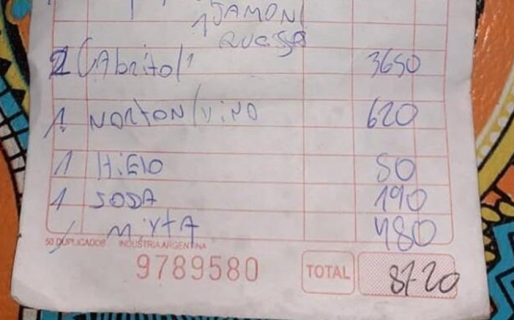 1 JAMON
QUESO
2 CAbrito/1 3650
1 NORTON/VINO 620
1 HIELO 50
1 SODA 190
1 MIXTA 480
50 DUPLICADOS INDUSTRIA ARGENTINA
9789580 TOTAL 8720